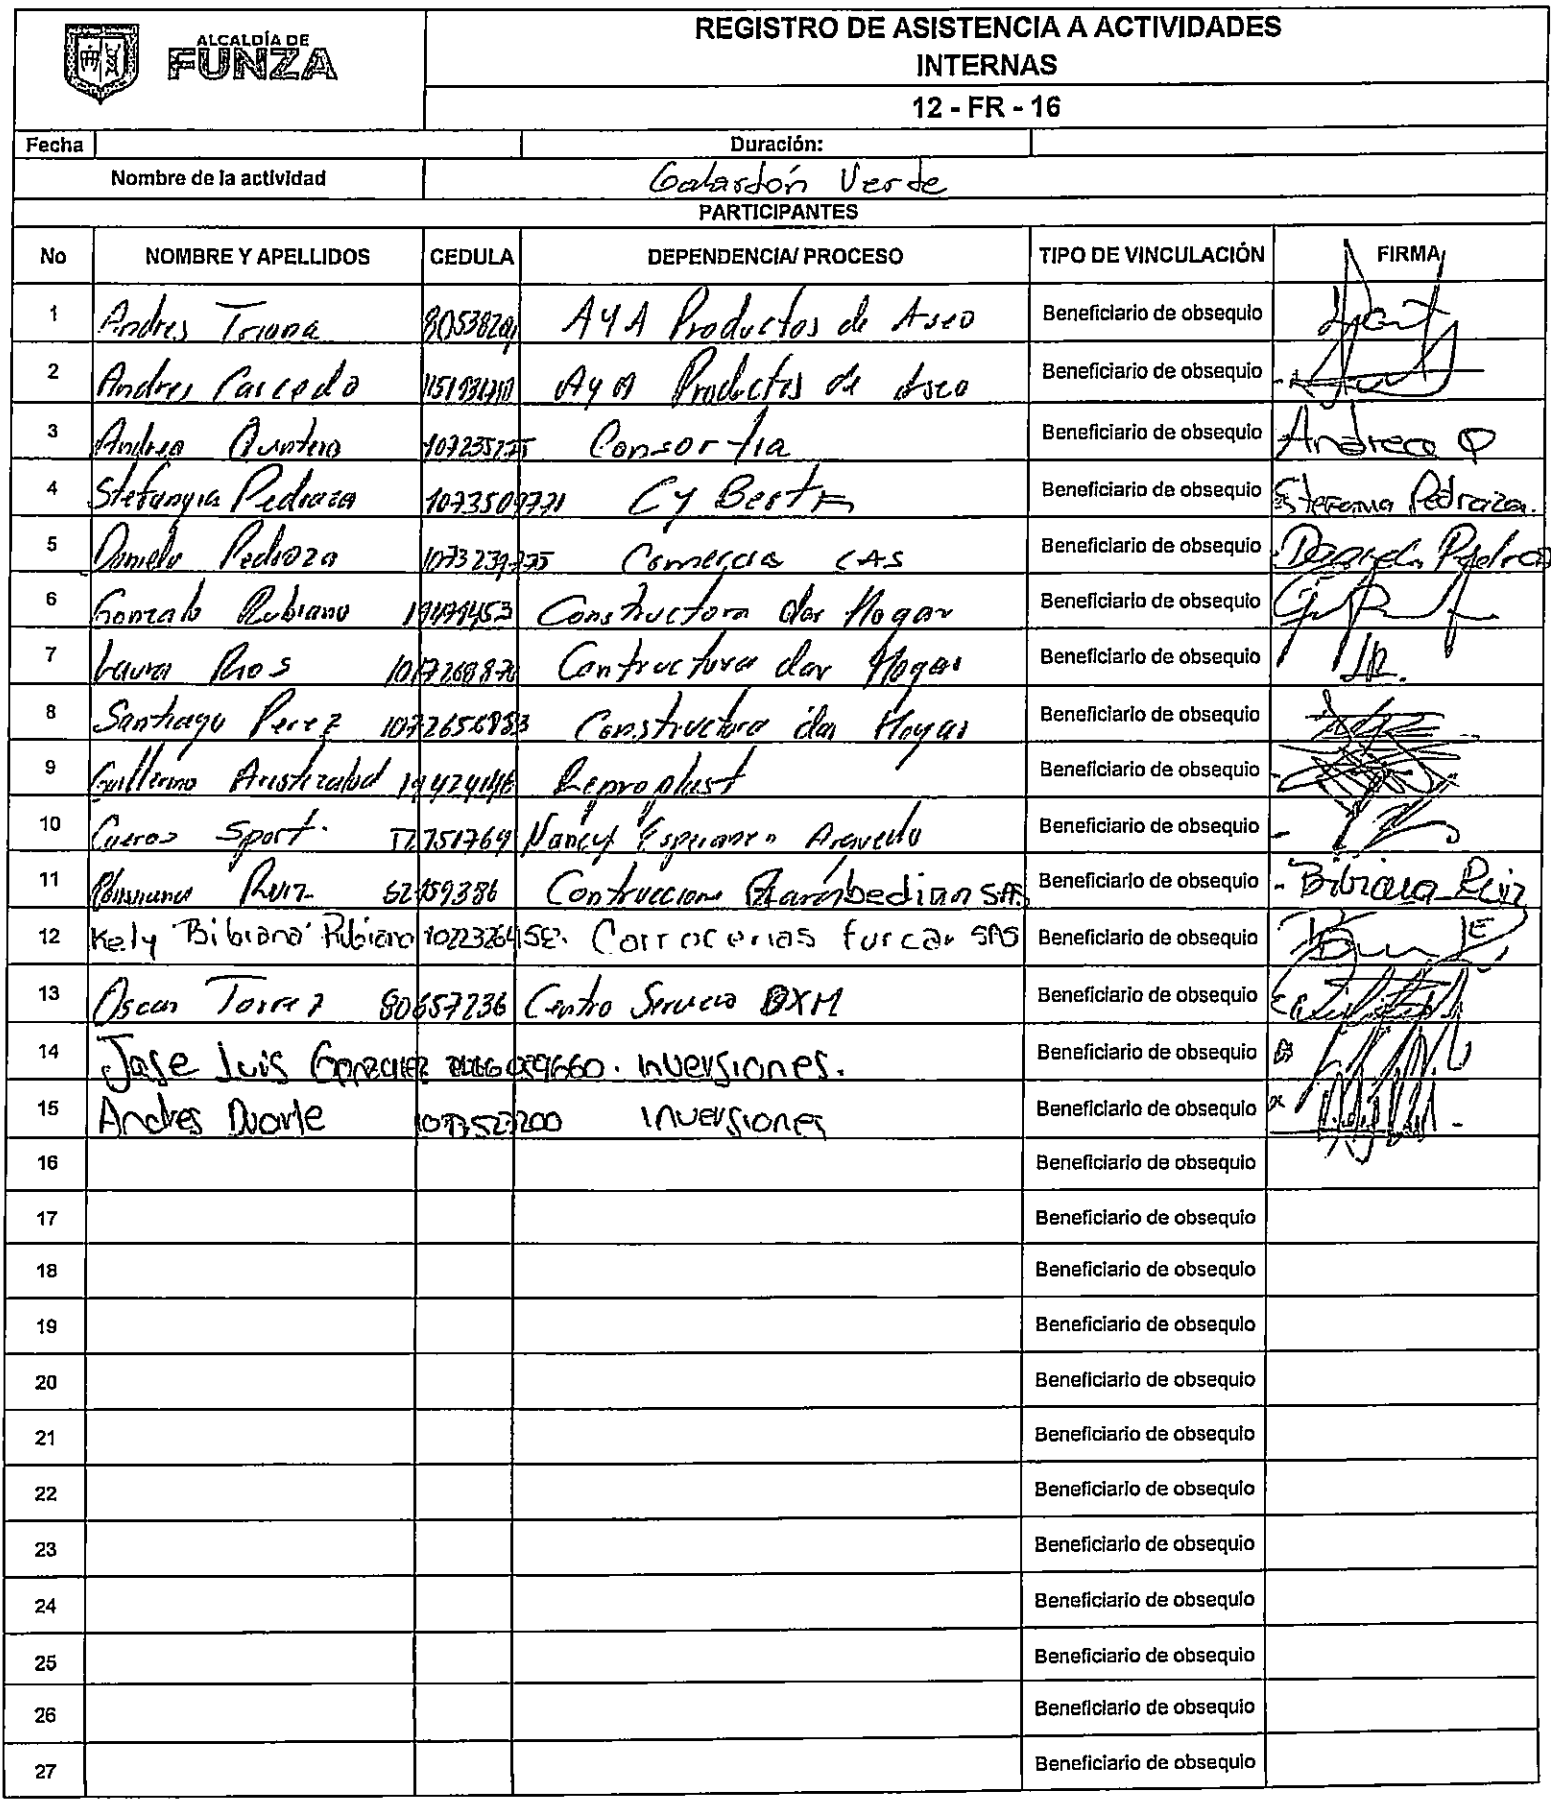 ALCALDÍA DE
FUNZA
REGISTRO DE ASISTENCIA A ACTIVIDADES
INTERNAS
12 - FR - 16
Fecha Duración:
Nombre de la actividad Galardón Verde
PARTICIPANTES
No NOMBRE Y APELLIDOS CEDULA DEPENDENCIA/ PROCESO TIPO DE VINCULACIÓN FIRMA
1 Andres Triana AYA Productos de Aseo Beneficiario de obsequio
2 Andres AyA Productos de Aseo Beneficiario de obsequio
3 Andrea Quintero Consor Beneficiario de obsequio Andrea Q
4 Pedraza Cy Beneficiario de obsequio Pedraza.
5 Daniela Pedraza CAS Beneficiario de obsequio Daniela
6 Gonzalo Rubiano 19479453 Constructora dar Hogar Beneficiario de obsequio
7 Laura Rios Contructora dar Hogar Beneficiario de obsequio LR.
8 Santiago Perez Constructora dar Hogar Beneficiario de obsequio
9 Guillermo Reproplast Beneficiario de obsequio
10 Cueros Sport. Nancy Beneficiario de obsequio
11 Ruiz Beneficiario de obsequio Bibiana Ruiz
12 Kely Bibiana Rubiano Carrocerias furcar SAS Beneficiario de obsequio
13 Oscar Torrez 80657236 Centro Servicio Beneficiario de obsequio
14 Jose Luis Gonzalez Inversiones. Beneficiario de obsequio
15 Andres Duarte Inversiones Beneficiario de obsequio
16 Beneficiario de obsequio
17 Beneficiario de obsequio
18 Beneficiario de obsequio
19 Beneficiario de obsequio
20 Beneficiario de obsequio
21 Beneficiario de obsequio
22 Beneficiario de obsequio
23 Beneficiario de obsequio
24 Beneficiario de obsequio
25 Beneficiario de obsequio
26 Beneficiario de obsequio
27 Beneficiario de obsequio